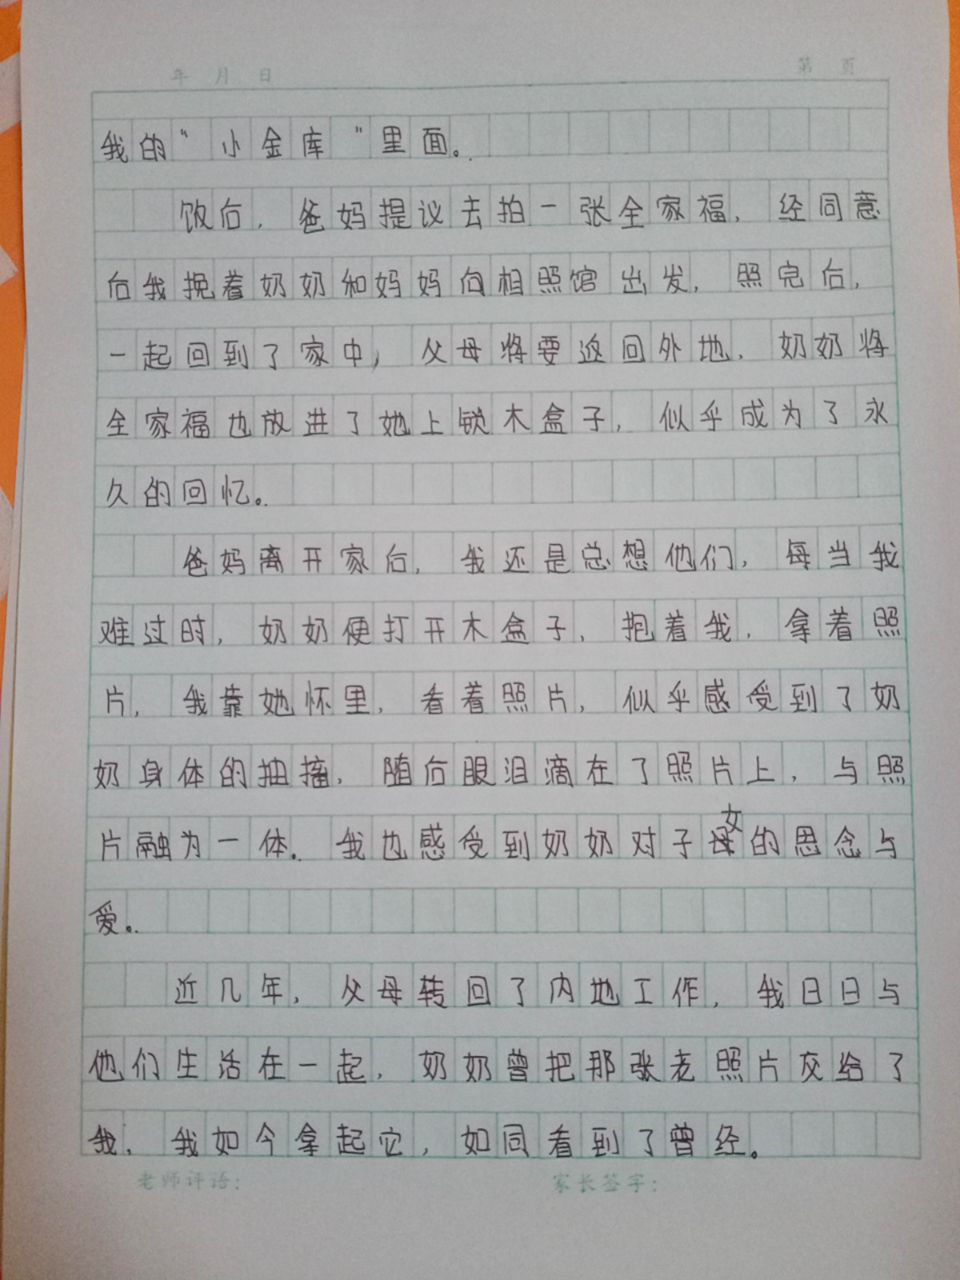 年 月 日 第 页
我的“小金库”里面。
饭后，爸妈提议去拍一张全家福，经同意
后我挽着奶奶和妈妈向相照馆出发，照完后，
一起回到了家中，父母将要返回外地，奶奶将
全家福也放进了她上锁木盒子，似乎成为了永
久的回忆。
爸妈离开家后，我还是总想他们，每当我
难过时，奶奶便打开木盒子，抱着我，拿着照
片，我靠她怀里，看着照片，似乎感受到了奶
奶身体的抽搐，随后眼泪滴在了照片上，与照
片融为一体。我也感受到奶奶对子女的思念与
爱。
近几年，父母转回了内地工作，我日日与
他们生活在一起，奶奶曾把那张老照片交给了
我，我如今拿起它，如同看到了曾经。
老师评语： 家长签字：